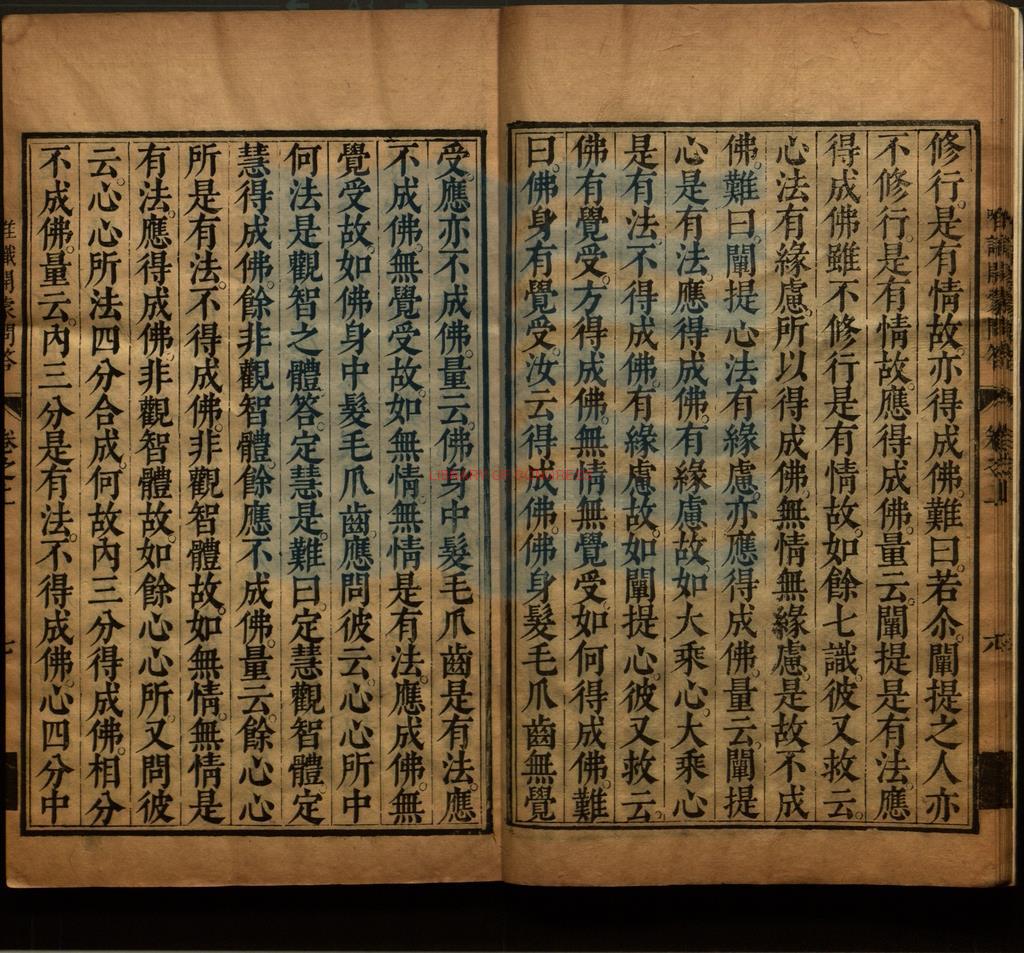 修行。是有情故。亦得成佛。難曰。若尒。闡提之人。亦
不修行。是有情故。應得成佛。量云。闡提是有法。應
得成佛。雖不修行。是有情故。如餘七識。彼又救云。
心法有緣慮。所以得成佛。無情無緣慮。是故不成
佛。難曰。闡提心法有緣慮。亦應得成佛。量云。闡提
心是有法。應得成佛。有緣慮故。如大乘心。大乘心
是有法。不得成佛。有緣慮故。如闡提心。彼又救云。
佛有覺受。方得成佛。無情無覺受。如何得成佛。難
曰。佛身有覺受。汝云得成佛。佛身髮毛爪齒無覺
受。應亦不成佛。量云。佛身中髮毛爪齒是有法。應
不成佛。無覺受故。如無情。無情是有法。應成佛。無
覺受故。如佛身中髮毛爪齒。應問彼云。心心所中
何法是觀智之體。答。定慧是。難曰。定慧觀智體。定
慧得成佛。餘非觀智體。餘應不成佛。量云。餘心心
所是有法。不得成佛。非觀智體故。如無情。無情是
有法。應得成佛。非觀智體故。如餘心心所。又問彼
云。心心所法四分合成。何故內三分得成佛。相分
不成佛。量云。內三分是有法。不得成佛。心四分中
唯識開蒙問答
卷之上
LIBRARY OF CONGRESS